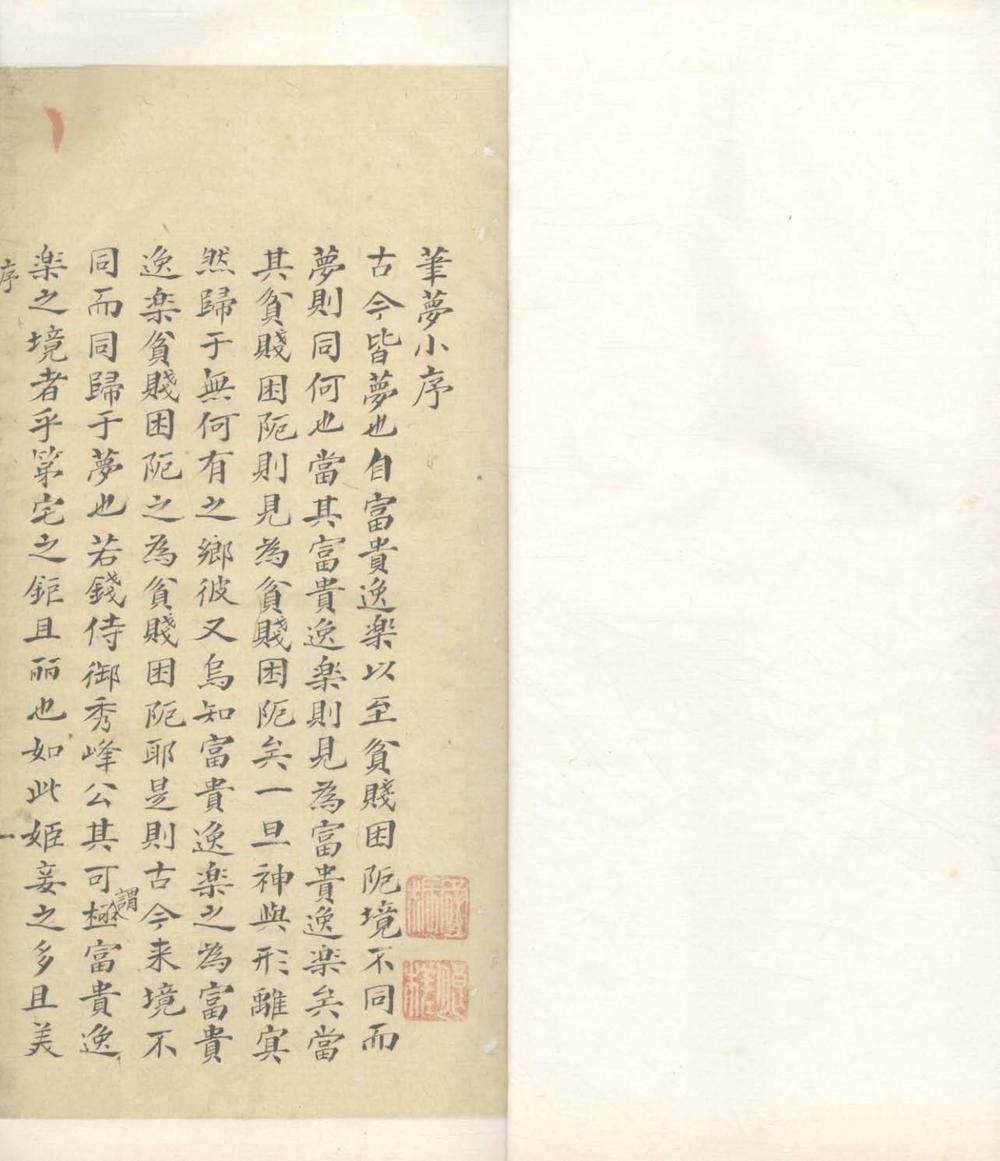 筆夢小序
古今皆夢也自富貴逸楽以至貧賤困阨境不同而
夢則同何也當其富貴逸楽則見為富貴逸楽矣當
其貧賤困阨則見為貧賤困阨矣一旦神與形離寘
然歸于無何有之鄉彼又烏知富貴逸楽之為富貴
逸楽貧賤困阨之為貧賤困阨耶是則古今来境不
同而同歸于夢也若錢侍御秀峰公其可謂極富貴逸
楽之境者乎第宅之鉅且丽也如此姬妾之多且美
序
一